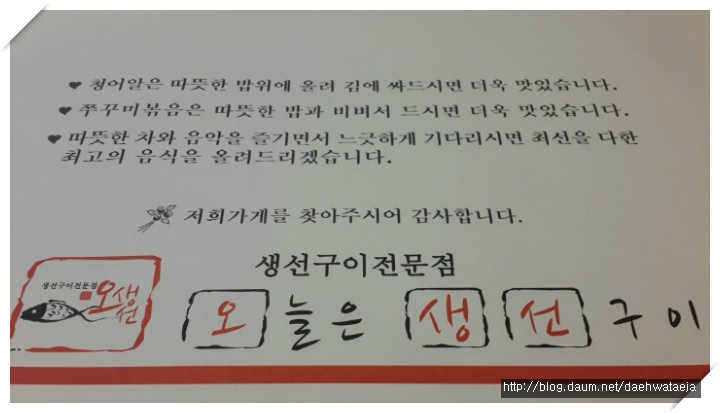 ♥ 청어알은 따뜻한 밥위에 올려 김에 싸드시면 더욱 맛있습니다.
♥ 쭈꾸미볶음은 따뜻한 밥과 비벼서 드시면 더욱 맛있습니다.
♥ 따뜻한 차와 음악을 즐기면서 느긋하게 기다리시면 최선을 다한
최고의 음식을 올려드리겠습니다.
저희가게를 찾아주시어 감사합니다.
생선구이전문점
생선구이전문점
오생선
오늘은 생선구이
http://blog.daum.net/daehwataeja